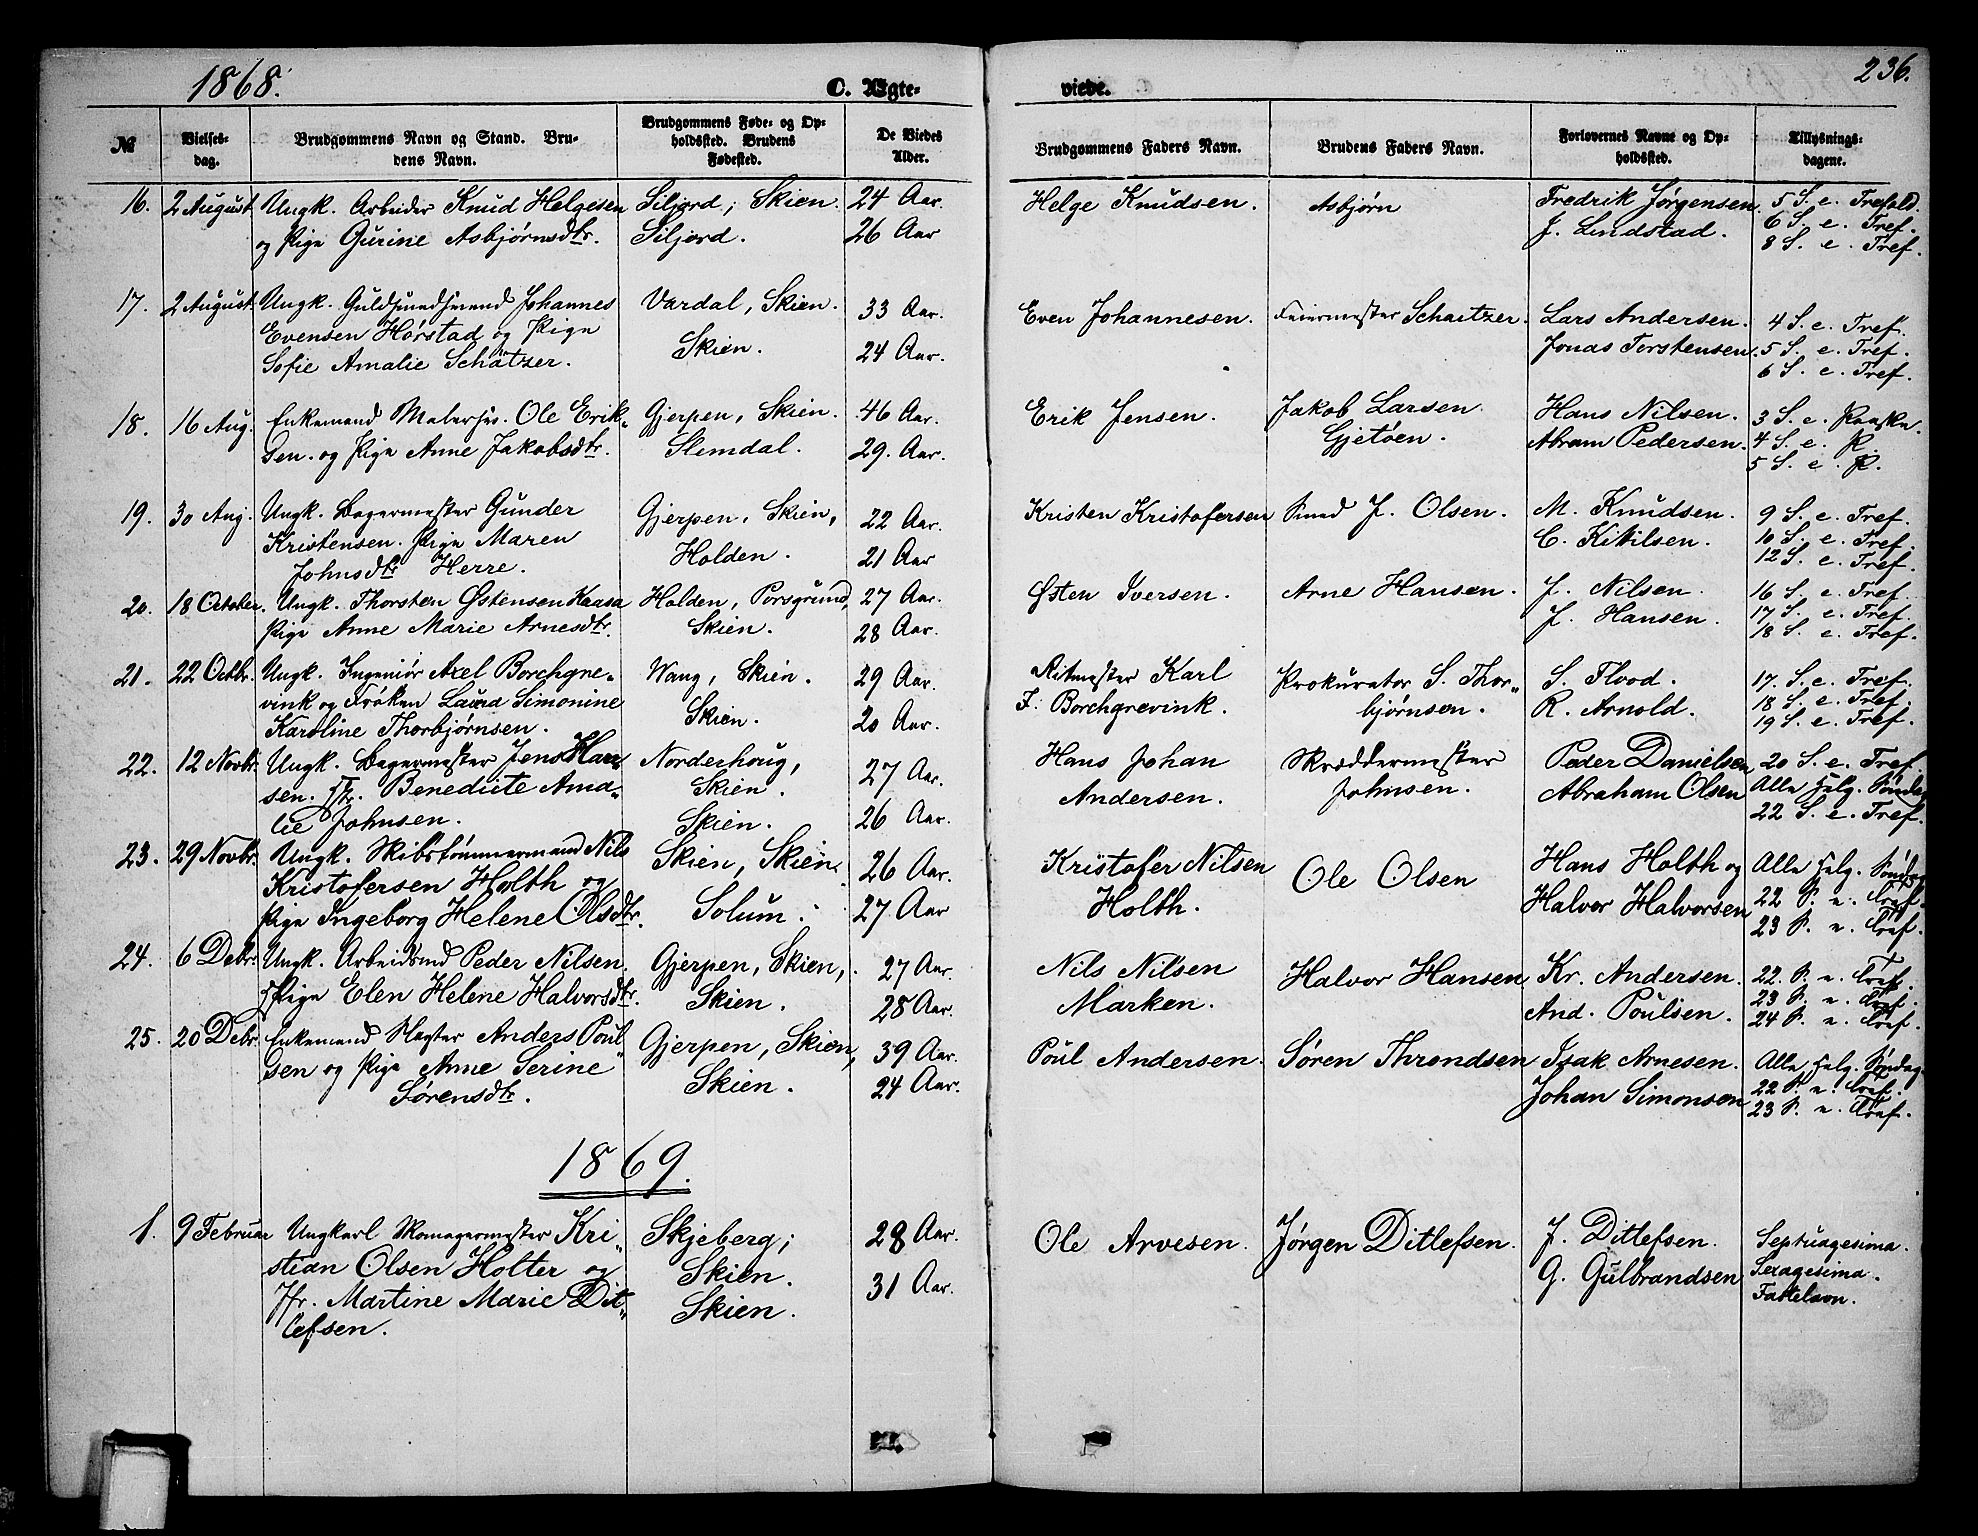 1868. C. Ægteviede. 236.
№ Vielsesdag. Brudgommens Navn og Stand. Brudens Navn. Brudgommens Føde- og Opholdssted. Brudens Fødested. De Viedes Alder. Brudgommens Faders Navn. Brudens Faders Navn. Forlovernes Navne og Opholdssted. Tillysningsdagene.
16. 2 August Ungk. Arbeider Knud Helgesen Siljord, Skien. 24 Aar. Helge Knudsen. Asbjørn Fredrik Jørgensen. 5 S. e. Trefold.
og Pige Gurine Asbjørnsdtr. Siljord. 26 Aar J. Lindstad. 6 S. e. Tref.
8 S. e. Tref.
17. 2 August Ungk. Guldsmedsvend Johannes Vardal, Skien. 33 Aar. Even Johannesen. Feiermester Schaitzer. Lars Andersen. 4 S. e. Tref.
Evensen Hørstad og Pige Skien. 24 Aar. Jonas Torstensen. 5 S. e. Tref.
Sofie Amalie Schätzer. 6 S. e. Tref.
18. 16 Aug. Enkemand Malersv. Ole Erik- Gjerpen, Skien. 46 Aar. Erik Jensen. Jakob Larsen Hans Nilsen. 3 S. e. Paaske.
sen. og Pige Anne Jakobsdtr. Slemdal. 29. Aar. Gjetøen. Abram Pedersen. 4 S. e. P.
5 S. e. P.
19. 30 Aug. Ungk. Bagermester Gunder Gjerpen, Skien, 22 Aar. Kristen Kristofersen Smed J. Olsen. M. Knudsen. 9 S. e. Tref.
Kristensen. Pige Maren Holden. 21 Aar C. Kittilsen. 10 S. e. Tref.
Johnsdtr Herre. 12 S. e. Tref.
20. 18 October. Ungk. Thorsten Østensen Kaasa Holden, Porsgrund, 27 Aar. Østen Iversen. Arne Hansen. J. Nilsen. 16 S. e. Tref.
Pige Anne Marie Arnesdtr. Skien. 28 Aar. J. Hansen. 17 S. e. Tref.
18 S. e. Tref.
21. 22 Octbr. Ungk. Ingeniør Axel Borchgre- Wang, Skien. 29 Aar. Ritmester Karl Prokurator S. Thor- S. Flood. 17. S. e. Tref.
vink og Frøken Laura Simonine Skien. 20 Aar. F. Borchgrevink. bjørnsen. R. Arnold. 18 S. e. Tref.
Karoline Thorbjørnsen. 19 S. e. Tref.
22. 12 Novbr. Ungk. Bagermester Jens Han- Norderhoug, 27 Aar. Hans Johan Skræddermester Peder Danielsen 20 S. e. Tref.
sen. Jfr. Benedicte Ama- Skien. Andersen. Johnsen. Abraham Olsen Alle Helg. Søndag
lie Johnsen. Skien. 26 Aar. 22 S. e. Tref.
23. 29 Novbr. Ungk. Skibstømmermand Nils Skien, Skien. 26 Aar. Kristofer Nilsen Ole Olsen Hans Holth og Alle Helg. Søndag
Kristofersen Holth og Solum. 27 Aar Holth. Halvor Halvorsen 22 S. e. Tref.
Pige Ingeborg Helene Olsdtr. 23 S. e. Tref.
24. 6 Debr. Ungk. Arbeidsmd Peder Nilsen. Gjerpen, Skien, 27 Aar. Nils Nilsen Halvor Hansen Kr. Andersen. 22. S. e. Tref.
Pige Elen Helene Halvorsdtr. Skien. 28 Aar. Marken. And. Poulsen. 23 S. e. Tref.
24 S. e. Tref.
25. 20 Debr. Enkemand Anders Poul Gjerpen, Skien, 39 Aar. Poul Andersen. Søren Throndsen Isak Arnesen. Alle Helg. Søndag
sen og Pige Anne Serine Skien. 24 Aar. Johan Simonsen 22 S. e. Tref.
Sørensdtr. 23 S. e. Tref.
1869.
1. 9 Februar Ungkarl Skomagermester Kri- Skjeberg; 28 Aar. Ole Arvesen. Jørgen Ditlefsen. J. Ditlefsen. Septuagesima.
stian Olsen Holter og Skien. 31 Aar. G. Gulbrandsen Sexagesima.
Jfr. Martine Marie Dit- Skien. Fastelavn.
lefsen.